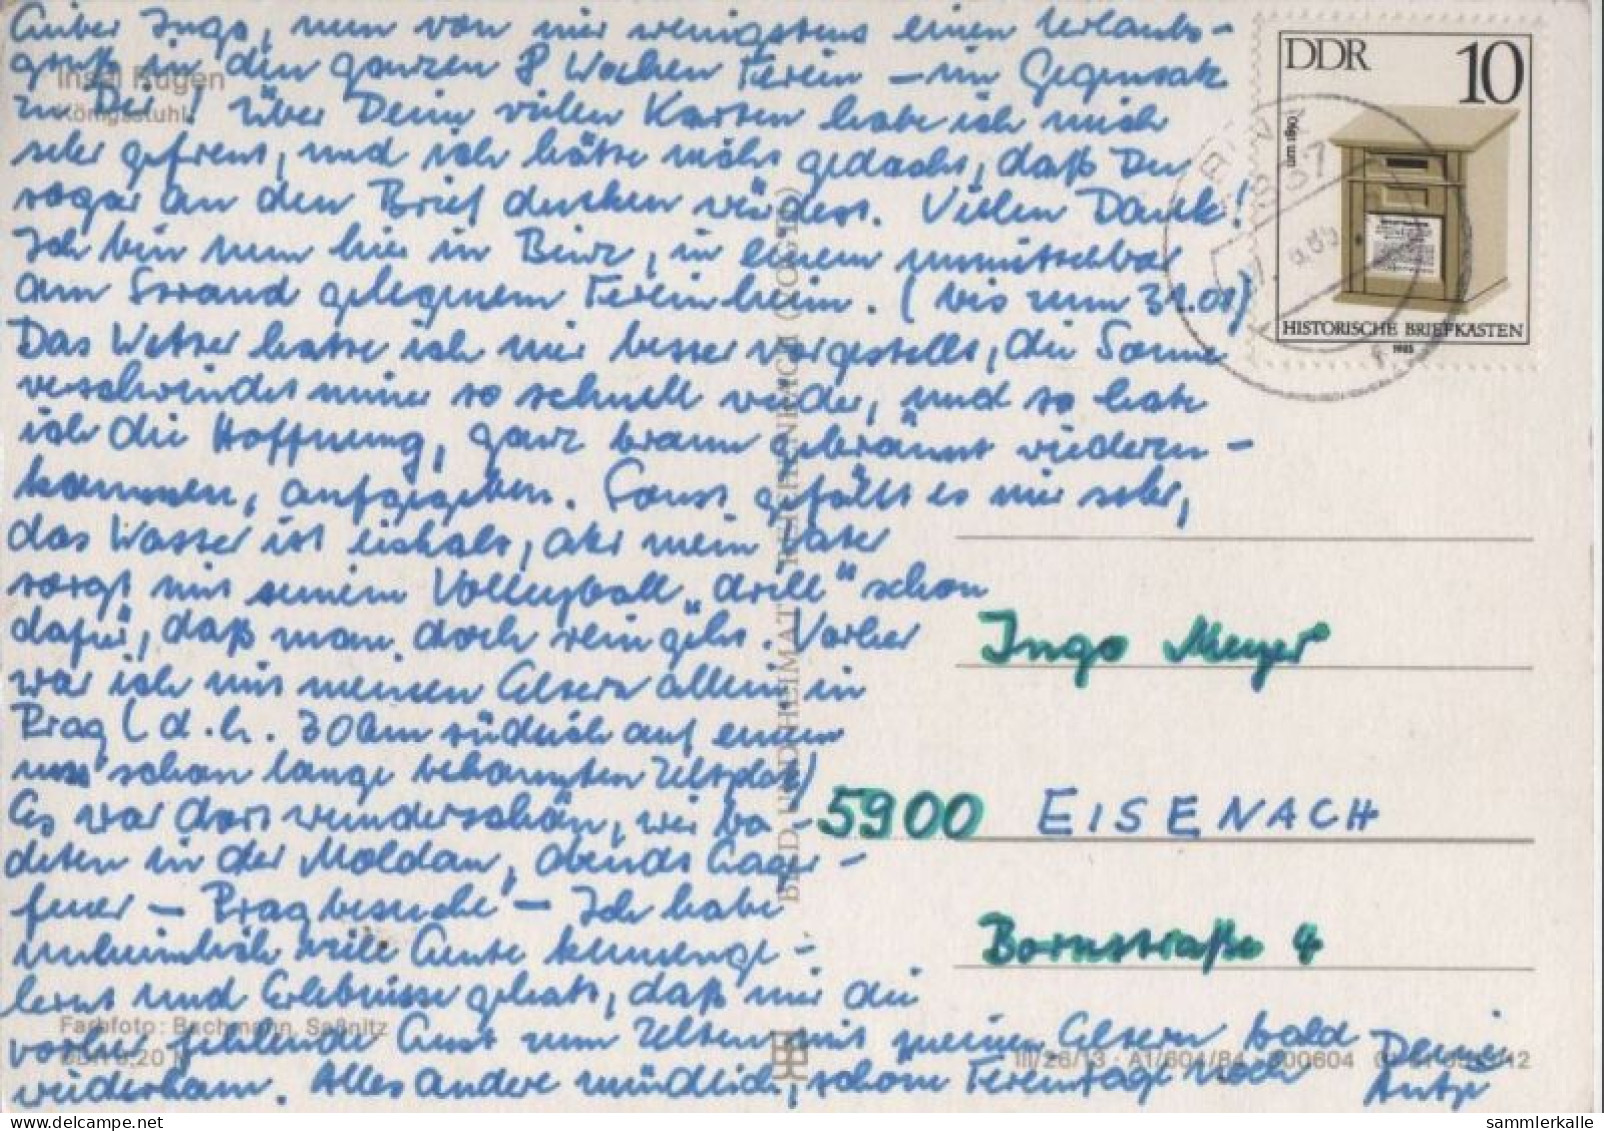 Lieber Ingo, nun von mir wenigstens einen Urlaubs-
gruß in den ganzen 8 Wochen Ferein – im Gegensatz
zu Dir! Über Deine vielen Karten habe ich mich
sehr gefreut, und ich hätte nicht gedacht, daß Du
sogar an den Brief denken würdest. Vielen Dank!
Ich bin nun hier in Binz, in einem unmittelbar
am Strand gelegenem Ferienheim. (bis zum 31.08)
Das Wetter hatte ich mir besser vorgestellt, die Sonne
verschwindet immer so schnell wieder, und so habe
ich die Hoffnung, ganz braun gebrännt wiederzu-
kommen, aufgegeben. Sonst gefällt es mir sehr,
das Wasser ist eiskalt, aber mein Vater
sorgt mit seinem Volleyball „drill“ schon
dafür, daß man doch reingeht. Vorher
war ich mit meinen Eltern allein in
Prag (d.h. 30km südlich auf einem
uns schon lange bekannten Zeltplatz)
Es war dort wunderschön, wir ba-
deten in der Moldau, abends Lager-
feuer – Pragbesuche – Ich habe
unheimlich viele Leute kennenge-
lernt und Erlebnisse gehabt, daß mir die
vorher fehlende Lust zum Zelten mit meinen Eltern bald
wiederkam. Alles andere mündlich, schöne Ferientage noch
Deine
Antje
Insel Rügen
Königsstuhl
Farbfoto: Bachmann, Saßnitz
0,20 M
BILD UND HEIMAT REICHENBACH (VOGTL)
III/26/13 · A1/604/84
DDR 10
um 1910
HISTORISCHE BRIEFKÄSTEN
1985
Ingo Meyer
5900 EISENACH
Bornstraße 4
sammlerkalle